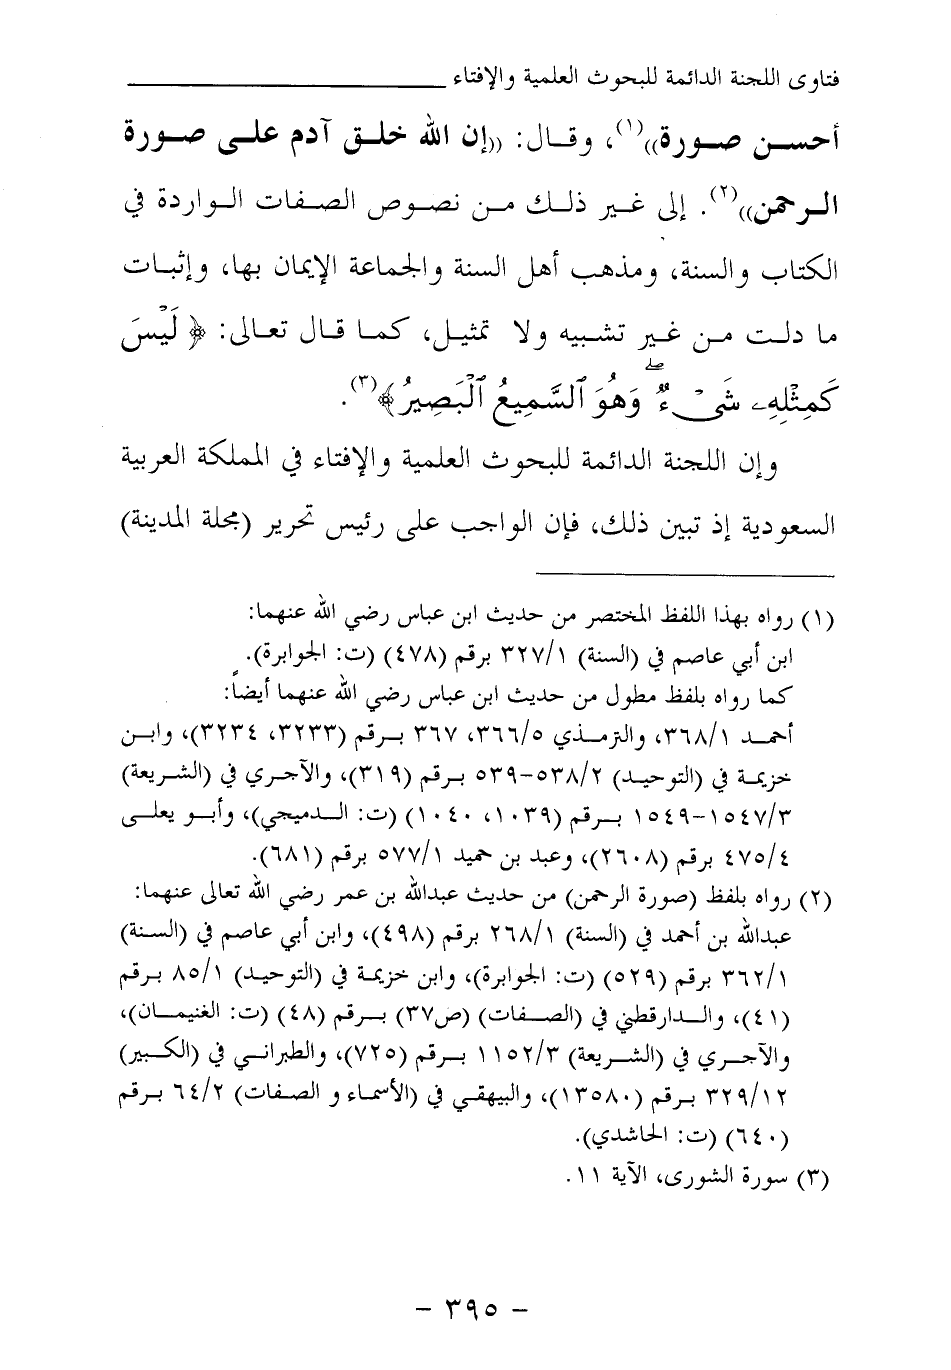 فتاوى اللجنة الدائمة للبحوث العلمية والإفتاء
أحسن صورة))(١)، وقال: ((إن الله خلق آدم على صورة
الرحمن))(٢). إلى غير ذلك من نصوص الصفات الواردة في
الكتاب والسنة، ومذهب أهل السنة والجماعة الإيمان بها، وإثبات
ما دلت من غير تشبيه ولا تمثيل، كما قال تعالى: ﴿ لَيْسَ
كَمِثْلِهِۦ شَىْءٌ ۖ وَهُوَ ٱلسَّمِيعُ ٱلْبَصِيرُ ﴾(٣).
وإن اللجنة الدائمة للبحوث العلمية والإفتاء في المملكة العربية
السعودية إذ تبين ذلك، فإن الواجب على رئيس تحرير (مجلة المدينة)
(١) رواه بهذا اللفظ المختصر من حديث ابن عباس رضي الله عنهما:
ابن أبي عاصم في (السنة) ٣٢٧/١ برقم (٤٧٨) (ت: الجوابرة).
كما رواه بلفظ مطول من حديث ابن عباس رضي الله عنهما أيضاً:
أحمد ٣٦٨/١، والترمذي ٣٦٦/٥، ٣٦٧ برقم (٣٢٣٣، ٣٢٣٤)، وابن
خزيمة في (التوحيد) ٥٣٨/٢-٥٣٩ برقم (٣١٩)، والآجري في (الشريعة)
١٥٤٧/٣-١٥٤٩ برقم (١٠٣٩، ١٠٤٠) (ت: الدميجي)، وأبو يعلى
٤٧٥/٤ برقم (٢٦٠٨)، وعبد بن حميد ٥٧٧/١ برقم (٦٨١).
(٢) رواه بلفظ (صورة الرحمن) من حديث عبدالله بن عمر رضي الله تعالى عنهما:
عبدالله بن أحمد في (السنة) ٢٦٨/١ برقم (٤٩٨)، وابن أبي عاصم في (السنة)
٣٦٢/١ برقم (٥٢٩) (ت: الجوابرة)، وابن خزيمة في (التوحيد) ٨٥/١ برقم
(٤١)، والدارقطني في (الصفات) (ص٣٧) برقم (٤٨) (ت: الغنيمان)،
والآجري في (الشريعة) ١١٥٢/٣ برقم (٧٢٥)، والطبراني في (الكبير)
٣٢٩/١٢ برقم (١٣٥٨٠)، والبيهقي في (الأسماء و الصفات) ٦٤/٢ برقم
(٦٤٠) (ت: الحاشدي).
(٣) سورة الشورى، الآية ١١.
- ٣٩٥ -